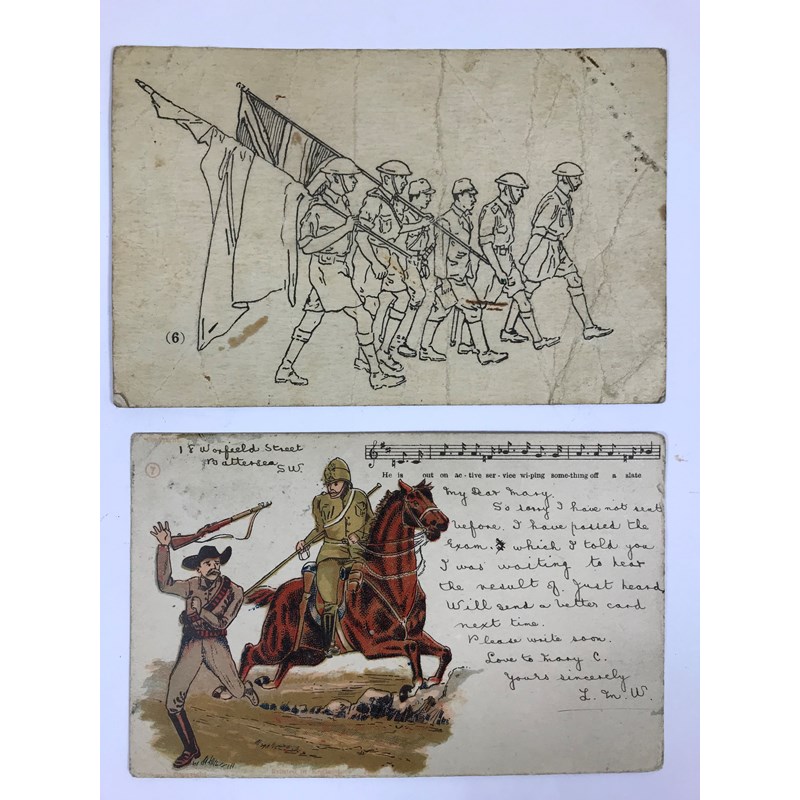 (6)
18 Worfield Street
Battersea
SW.
He is out on ac-tive ser-vice wi-ping some-thing off a slate
My Dear Mary.
So sorry I have not sent
before. I have passed the
Exam. which I told you
I was waiting to hear
the result of. Just heard
Will send a better card
next time.
Please write soon.
Love to Mary C.
Yours sincerely
L. M. W.